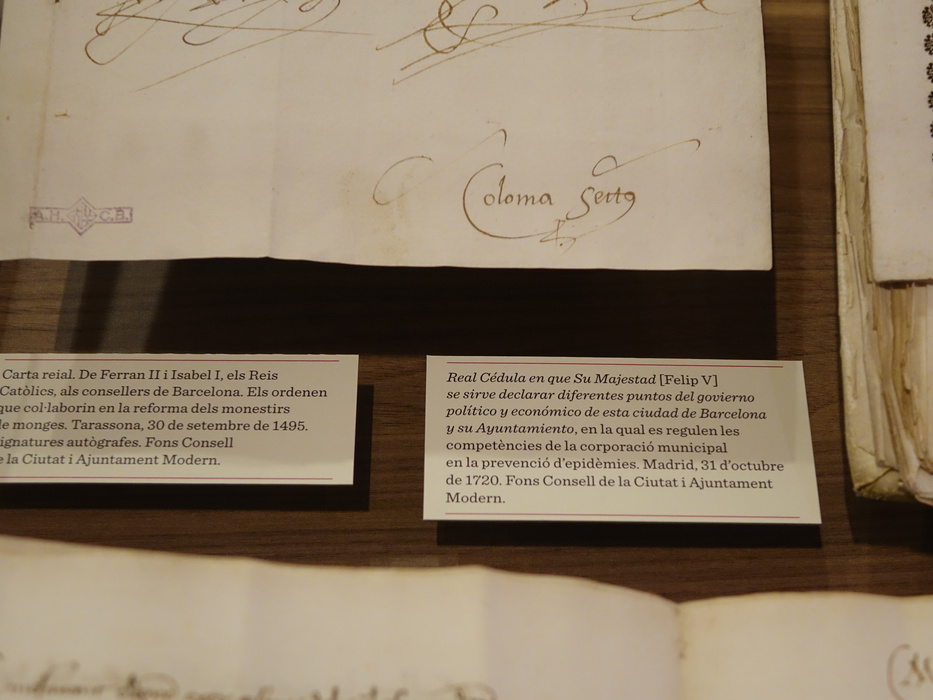 Coloma Setto
A.H. C.B.
Carta reial. De Ferran II i Isabel I, els Reis
Catòlics, als consellers de Barcelona. Els ordenen
que col·laborin en la reforma dels monestirs
de monges. Tarassona, 30 de setembre de 1495.
ignatures autògrafes. Fons Consell
e la Ciutat i Ajuntament Modern.
Real Cédula en que Su Majestad [Felip V]
se sirve declarar diferentes puntos del govierno
político y económico de esta ciudad de Barcelona
y su Ayuntamiento, en la qual es regulen les
competències de la corporació municipal
en la prevenció d'epidèmies. Madrid, 31 d'octubre
de 1720. Fons Consell de la Ciutat i Ajuntament
Modern.